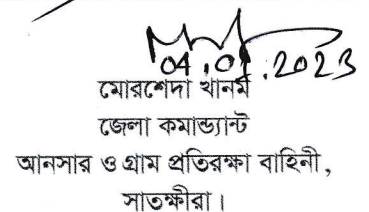 মোরশেদা খানম
জেলা কমান্ড্যান্ট
আনসার ও গ্রাম প্রতিরক্ষা বাহিনী,
সাতক্ষীরা।